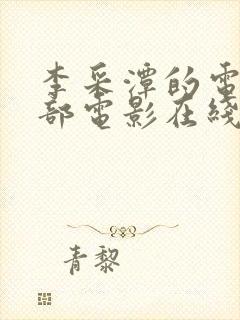 李采潭的電
部電影在綫
青黎